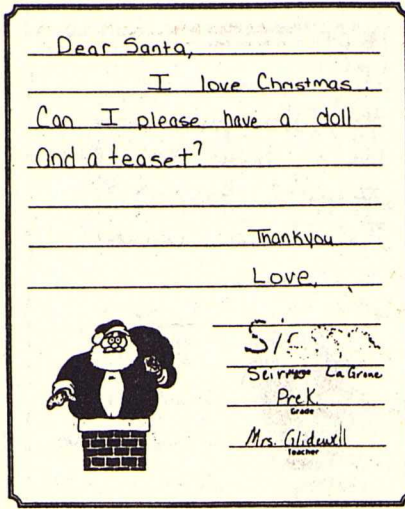 Dear Santa,
I love Christmas.
Can I please have a doll
And a teaset?
Thankyou
Love,
LaGrone
PreK
Grade
Mrs. Glidewell
teacher